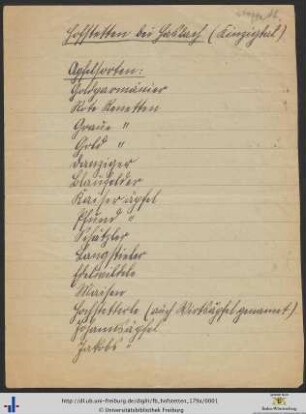 Hofstetten bei Haslach (Kinzigtal)
Apfelsorten:
Goldparmänier
Rote Renetten
Graue "
Gold "
Danziger
Blaufelder
Kaiseräpfel
Pfund "
Schätzler
Langstieler
Maiser
Hochstetterle (auch Wirtsäpfel genannt)
Johannisäpfel
Jakobs "
http://dl.ub.uni-freiburg.de/diglit/fb_hofstetten_179a/0001
© Universitätsbibliothek Freiburg